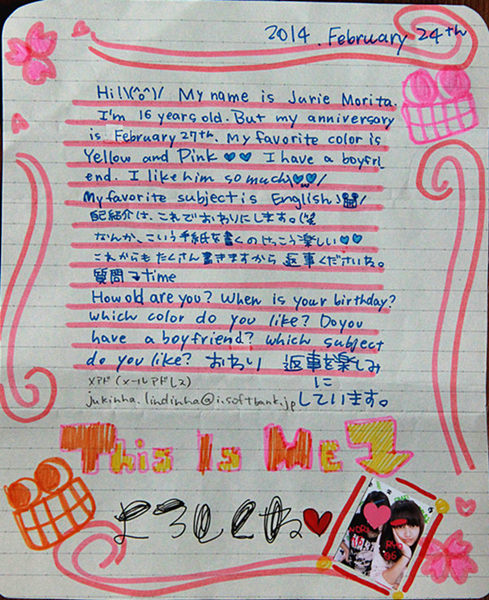 2014. February 24th
Hi!\(^o^)/ My name is Jurie Morita.
I'm 16 years old. But my anniversary
is February 27th. My favorite color is
Yellow and Pink♥♥ I have a boyfri
end. I like him so much
My favorite subject is English♪
紹介は、これでおわりにします。
なんか、こういう手紙を書くのけっこう楽しい♥♥
これからもたくさん書きますから返事くださいね。
質問 time
How old are you? When is your birthday?
which color do you like? Do you
have a boyfriend? which subject
do you like? おわり 返事を楽しみ
に
メアド(メールアドレス)
jukinha.lindinha@i.softbank.jp しています。
This Is Me
よろしくね♥